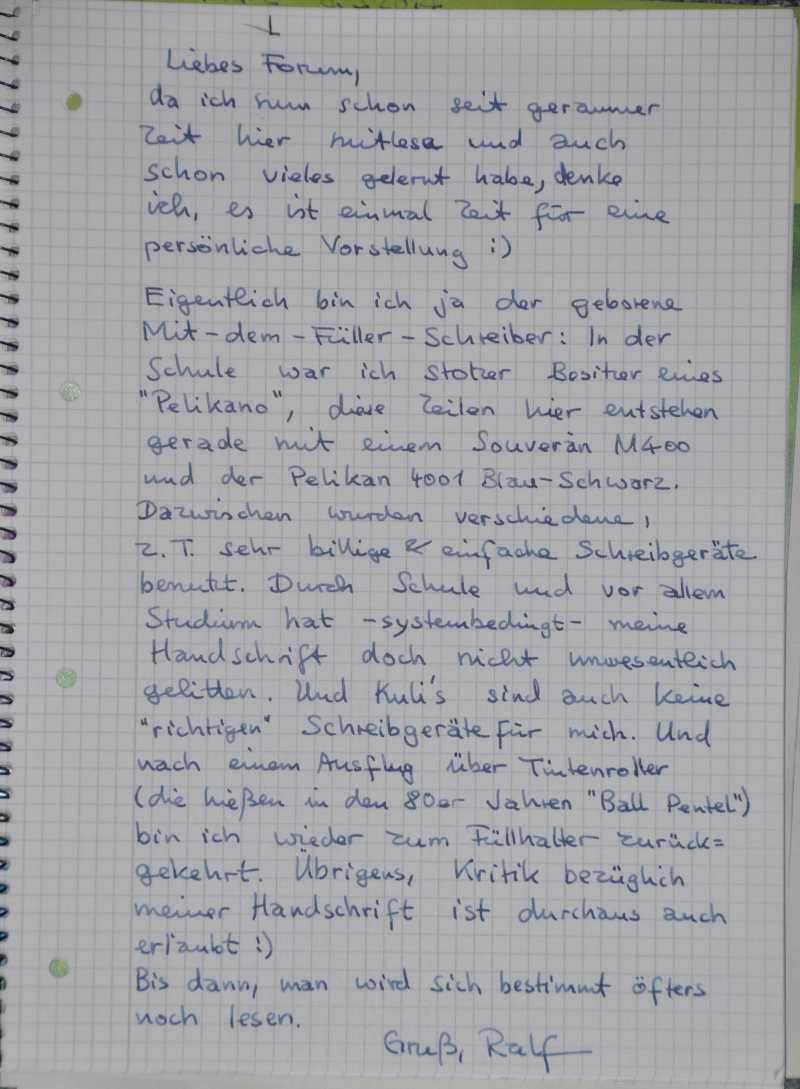 Liebes Forum,
da ich nun schon seit geraumer
Zeit hier mitlese und auch
schon vieles gelernt habe, denke
ich, es ist einmal Zeit für eine
persönliche Vorstellung :)
Eigentlich bin ich ja der geborene
Mit-dem-Füller-Schreiber: In der
Schule war ich stolzer Besitzer eines
"Pelikano", diese Zeilen hier entstehen
gerade mit einem Souverän M400
und der Pelikan 4001 Blau-Schwarz.
Dazwischen wurden verschiedene,
z.T. sehr billige & einfache Schreibgeräte
benutzt. Durch Schule und vor allem
Studium hat -systembedingt- meine
Handschrift doch nicht unwesentlich
gelitten. Und Kuli's sind auch keine
"richtigen" Schreibgeräte für mich. Und
nach einem Ausflug über Tintenroller
(die hießen in den 80er Jahren "Ball Pentel")
bin ich wieder zum Füllhalter zurück=
gekehrt. Übrigens, Kritik bezüglich
meiner Handschrift ist durchaus auch
erlaubt :)
Bis dann, man wird sich bestimmt öfters
noch lesen.
Gruß, Ralf